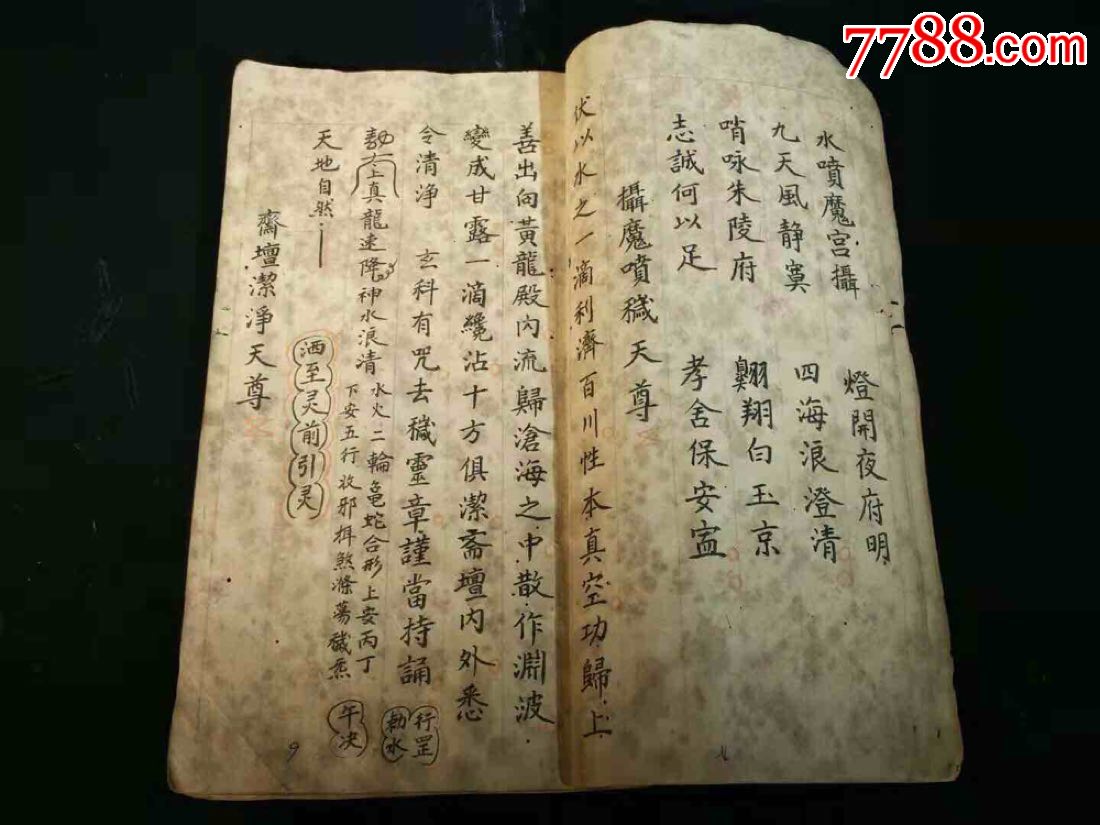 7788.com
中国收藏热线
水噴魔宮攝 燈開夜府明
九天風静寞 四海浪澄清
哨咏朱陵府 翱翔白玉京
志誠何以足 孝舍保安寍
攝魔噴穢天尊
伏以水之一滴利濟百川性本真空功歸上
善出向黃龍殿内流歸滄海之中散作淵波
變成甘露一滴纔沾十方俱潔斋壇内外悉
令清净 玄科有咒去穢靈章謹當持誦
勅太上真龍速降神水浪清
水火二輪龟蛇合形上安丙丁
下安五行收邪捍煞滌蕩穢炁
行罡
勅水
午决
天地自然
洒至灵前引灵
齋壇潔淨天尊
9